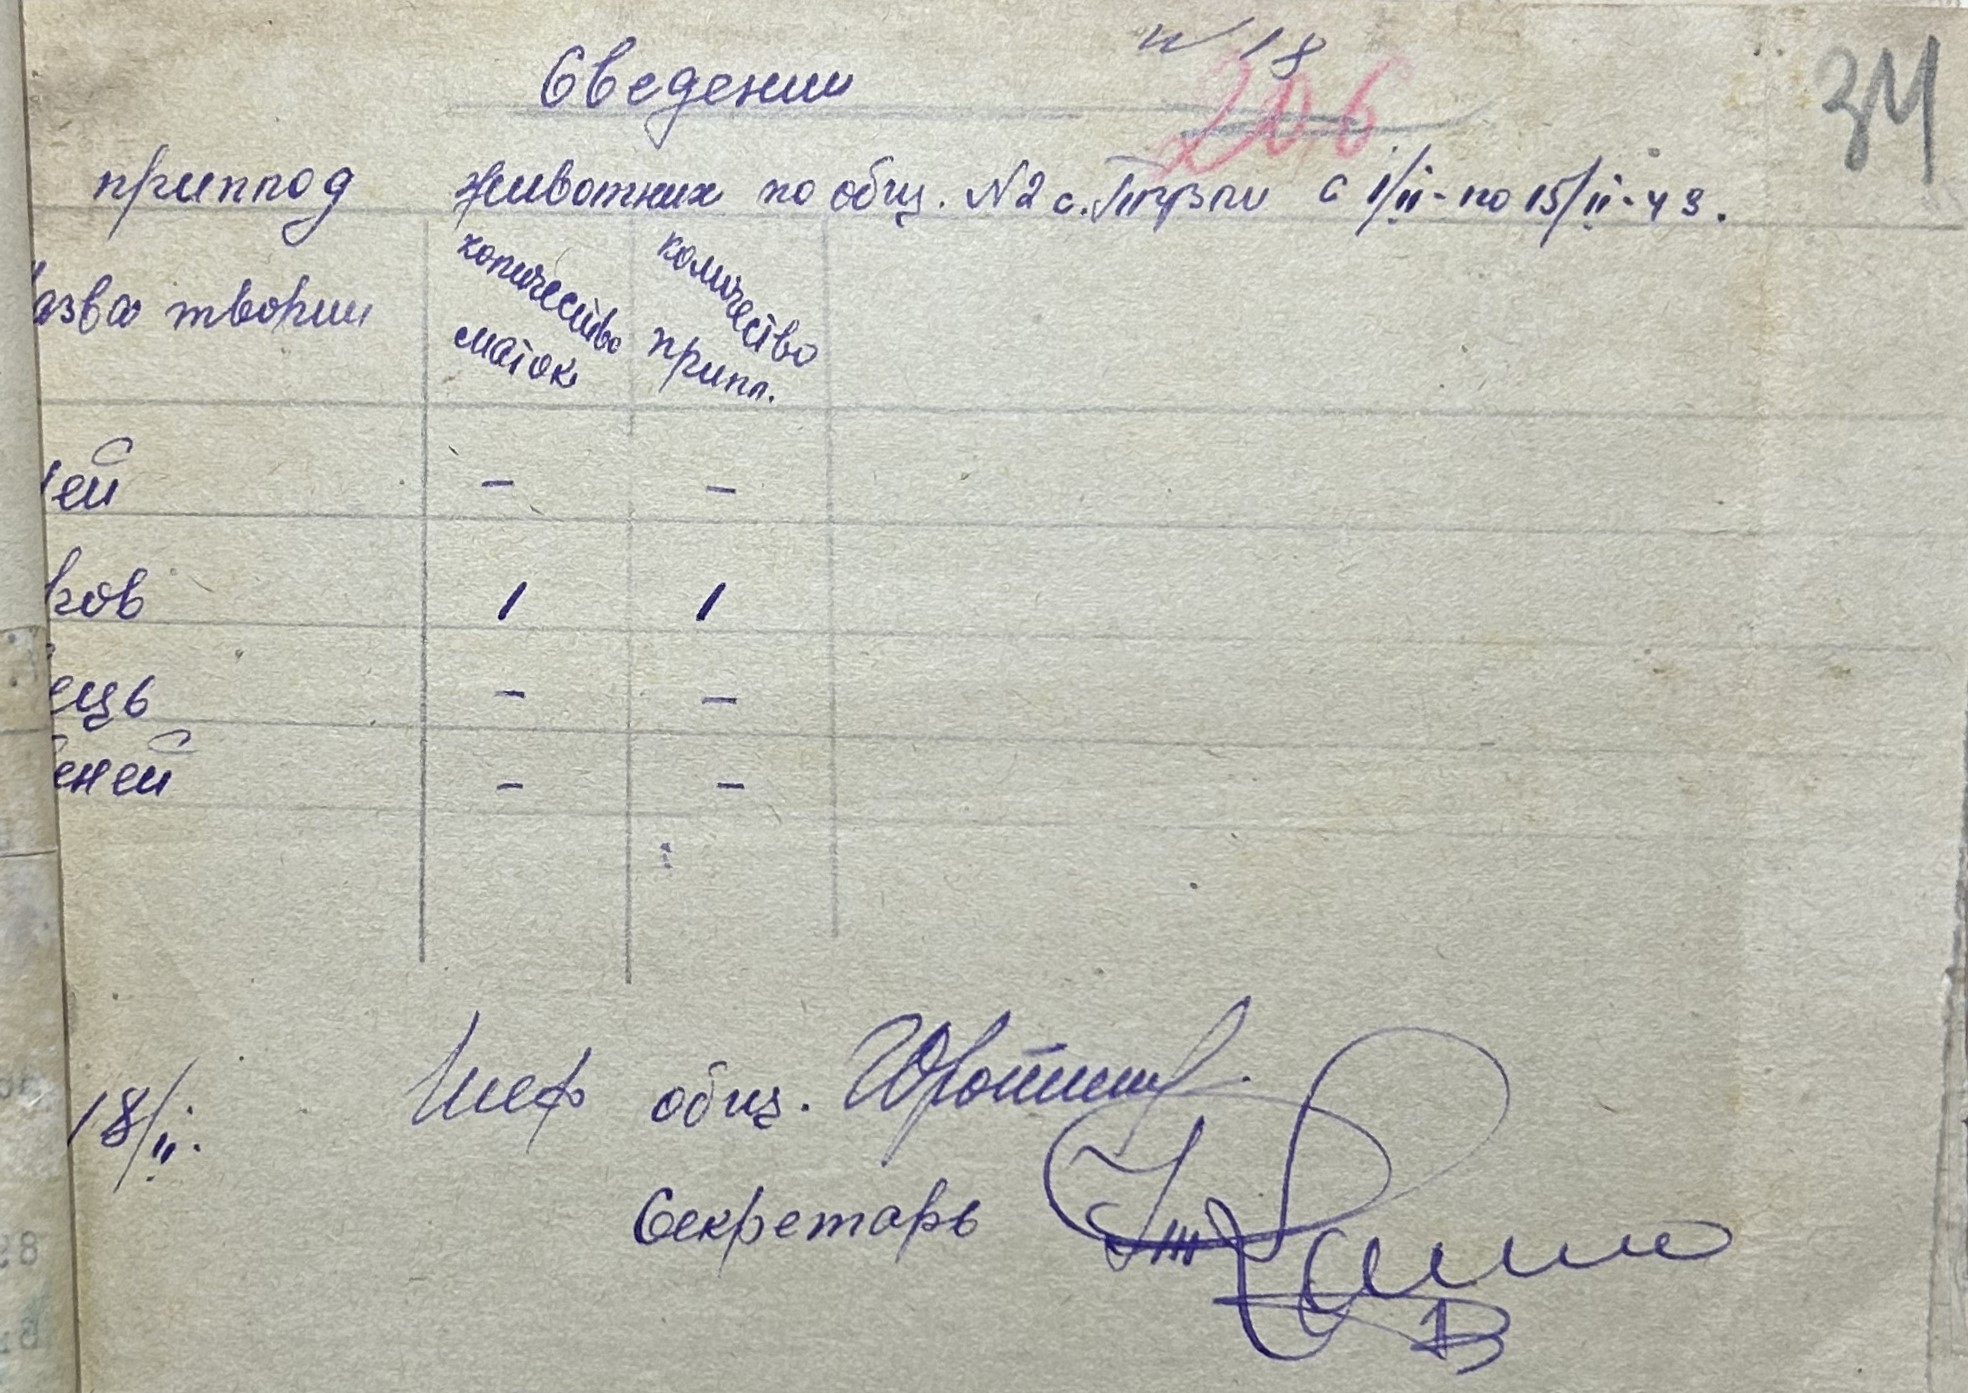 N 18
206
34
Сведении
приплод животних по общ. N2 с. Тузли с 1/II - по 15/II-43.
азва творин
количество маток
количество припл.
ей - -
ков 1 1
ець - -
еней - -
18/II.
Шеф общ.
Секретарь